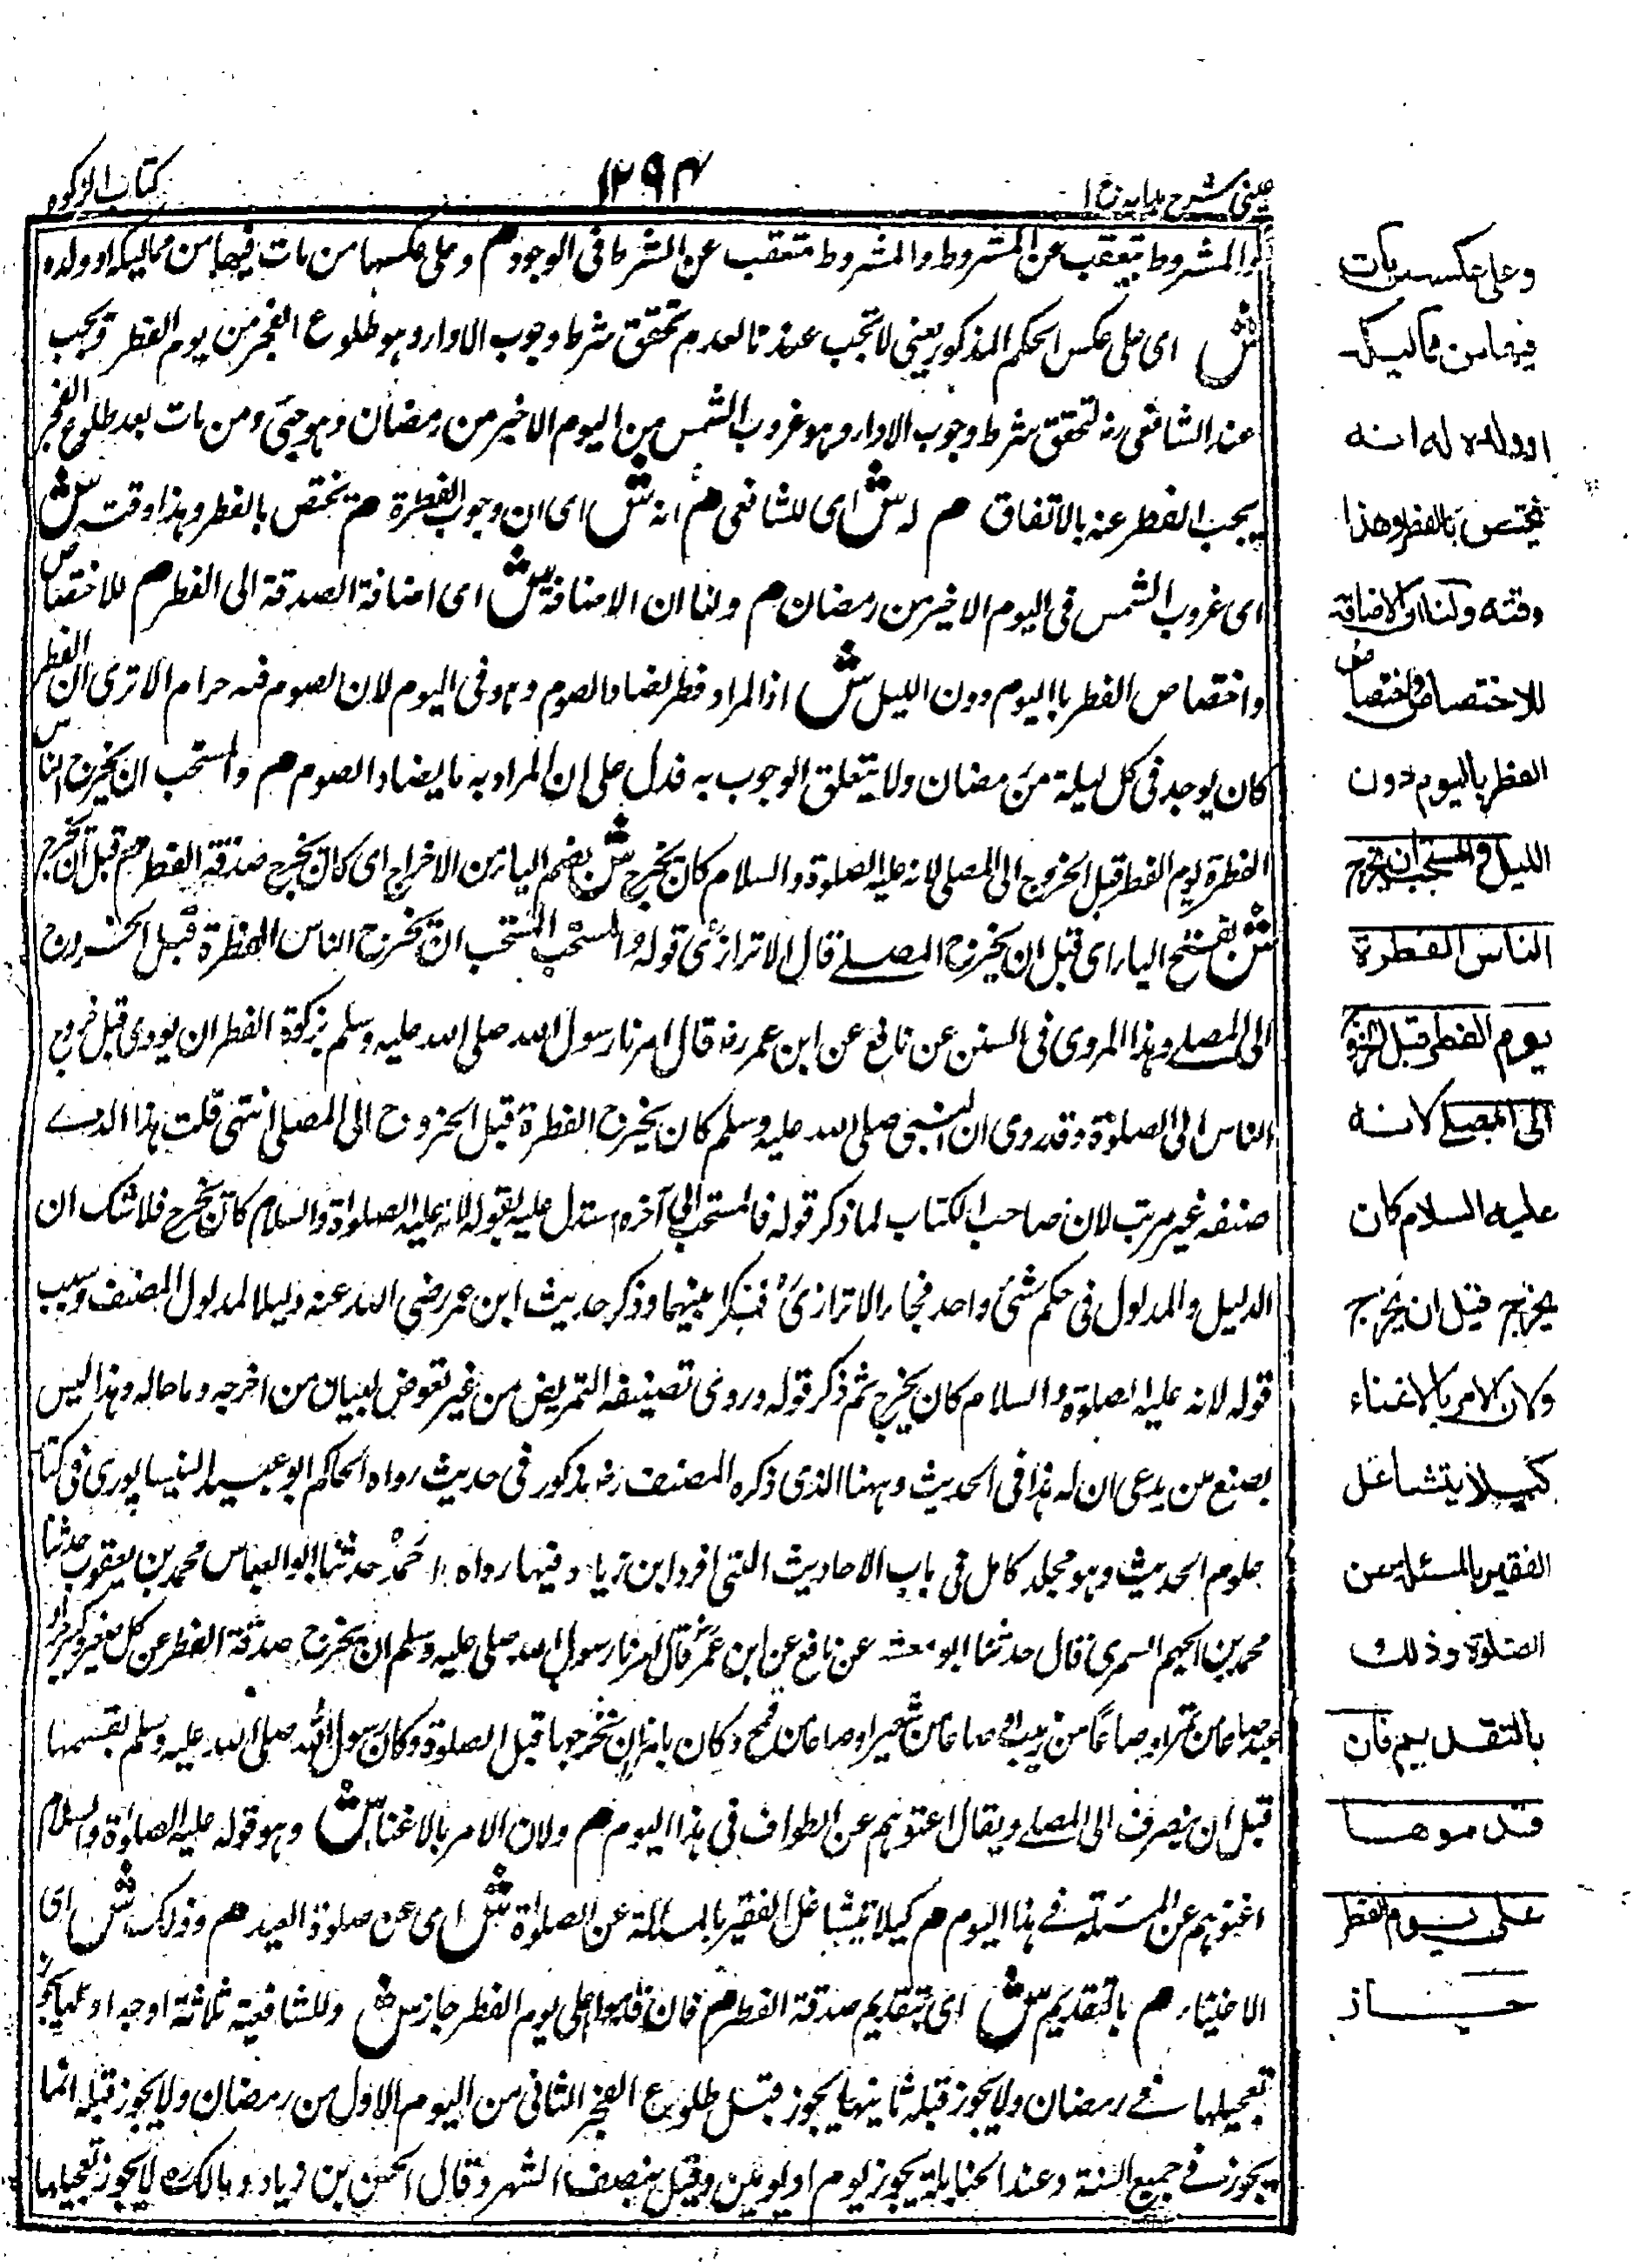 عینی شرح ہدایہ ج ا
١٢٩٤
کتاب الزکوة
والمشروط یتعقب عن المشروط والمشروط متعقب عن الشرط فی الوجود م وعلی عکسہا من مات فیہا من ممالیکہ او ولدہ
ش ای علی عکس الحکم المذکور یعنی لا تجب عندنا لعدم تحقق شرط وجوب الاداء وہو طلوع الفجر من یوم الفطر وتجب
عند الشافعی رہ لتحقق شرط وجوب الاداء وہو غروب الشمس من الیوم الاخیر من رمضان وہو حیّ ومن مات بعد طلوع الفجر
یجب الفطر عنہ بالاتفاق م لہ ش ای للشافعی م انہ ش ای ان وجوب الفطرة م تختص بالفطر وہذا وقتہ ش
ای غروب الشمس فی الیوم الاخیر من رمضان م ولنا ان الاضافة ش ای اضافة الصدقة الی الفطر م للاختصاص
واختصاص الفطر بالیوم دون اللیل ش اذ المراد فطر یضاد الصوم وہو فی الیوم لان الصوم فیہ حرام الا تری ان الفطر
کان یوجد فی کل لیلة من رمضان ولا یتعلق الوجوب بہ فدل علی ان المراد بہ ما یضاد الصوم م والمستحب ان یخرج الناس
الفطرة یوم الفطر قبل الخروج الی المصلی لانہ علیہ الصلوة والسلام کان یخرج ش بضم الیاء من الاخراج ای کان یخرج صدقة الفطر م قبل ان یخرج
ش بفتح الیاء ای قبل ان یخرج المصلے قال الاترازی قولہ والمستحب المستحب ان تخرج الناس الفطرة قبل الخروج
الی المصلے وہذا المروی فی السنن عن نافع عن ابن عمر رہ قال امرنا رسول اللہ صلی اللہ علیہ وسلم بزکوة الفطر ان یودی قبل خروج
الناس الی الصلوة وقد روی ان النبی صلی اللہ علیہ وسلم کان یخرج الفطرة قبل الخروج الی المصلی انتہی قلت ہذا الذے
صنفہ غیر مرتب لان صاحب الکتاب لما ذکر قولہ فالمستحب الی آخرہ استدل علیہ بقولہ لانہ علیہ الصلواة والسلام کان یخرج فلاشک ان
الدلیل والمدلول فی حکم شئ واحد فجاء الاترازی بینہما وذکر حدیث ابن عمر رضی اللہ عنہ دلیلا لمدلول المصنف وسبب
قولہ لانہ علیہ الصلوة والسلام کان یخرج ثم ذکر قولہ وروی تصنیفہ التمریض من غیر تعوض لبیان من اخرجہ وما حالہ وہذا لیس
بصنع من یدعی ان لہ یدا فی الحدیث وہہنا الذی ذکرہ المصنف رہ مذکور فی حدیث رواہ الحاکم ابو عبید النیساپوری فی کتا
علوم الحدیث وہو مجلد کامل فی باب الاحادیث التی افرد ابن زیاد فیہا رواہ حدثنا ابو العباس محمد بن یعقوب حدثنا
محمد بن الجہم السمری قال حدثنا ابو معشر عن نافع عن ابن عمر قال امرنا رسول اللہ صلی علیہ وسلم ان یخرج صدقة الفطر عن کل صغیر وکبیر
عبد صاعا من تمر او صاعًا من زبیب او صاعا من شعیر او صاعا من قمح وکان یامرنا ان نخرجہا قبل الصلوة وکان رسول اللہ صلی اللہ علیہ وسلم یقسمہا
قبل ان ینصرف الی المصلے ویقال اغنوہم عن الطواف فی ہذا الیوم م ولان الامر بالاغناء ش وہو قولہ علیہ الصلواة والسلام
اغنوہم عن المسئلة فے ہذا الیوم م کیلا یتشاغل الفقیر بالمسالة عن الصلواة ش ای عن صلوة العید م وذلک ش ای
الاغنیاء م بالتقدیم ش ای بتقدیم صدقة الفطر م فان قدموا علی یوم الفطر جاز ش وللشافعیة ثلاثة اوجہ
تعجیلہا فے رمضان ولا یجوز قبلہ ثانیہا یجوز قبل طلوع الفجر الثانی من الیوم الاول من رمضان ولا یجوز قبلہ
یجوز فے جمیع السنة وعند الحنابلة یجوز لیوم او لیومین وقیل بنصف الشہر وقال الحسن بن زیاد ومالک رہ لا یجوز تعجیلہا
وعلی عکسہ من مات
فیہا من ممالیکہ
او ولدہ لہ انہ
یختص بالفطر وهذا
وقتہ ولنا ان الاضافة
للاختصاص واختصاص
الفطر بالیوم دون
اللیل والمستحب ان یخرج
الناس الفطرة
یوم الفطر قبل الخروج
الی المصلے لانہ
علیہ السلام کان
یخرج قبل ان یخرج
ولان الامر بالاغناء
کیلا یتشاغل
الفقیر بالمسئلة عن
الصلوة وذلک
بالتقدیم فان
قدموها
علی یوم الفطر
جاز